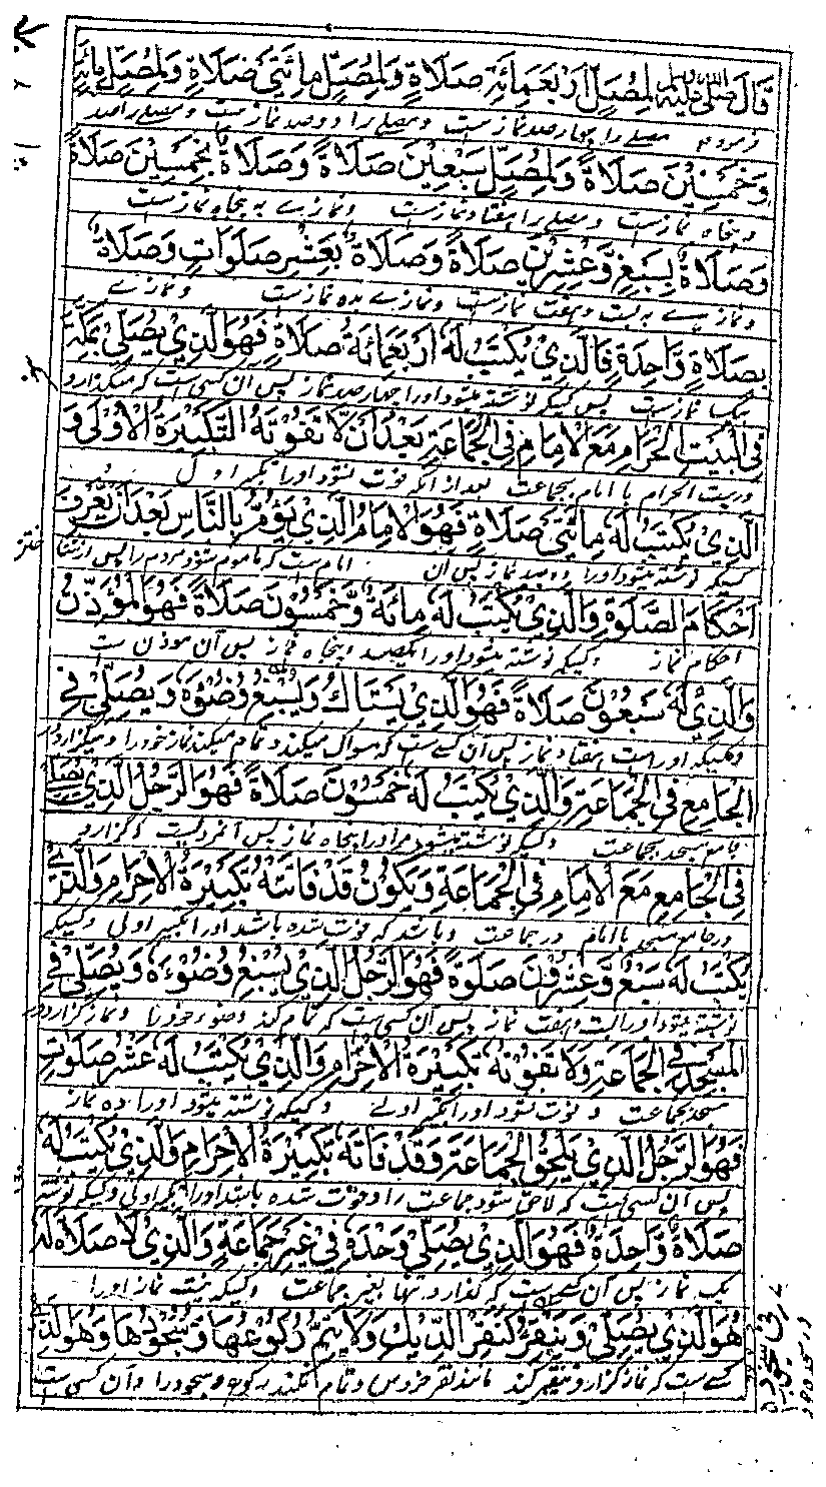 قَالَ صلى الله عليه وسلم لِمُصَلٍّ اَرْبَعَمِائَةِ صَلَاةٍ وَلِمُصَلٍّ مِائَتَيْ صَلَاةٍ وَلِمُصَلٍّ مِائَةٍ
فرموده مصلی را چهار صد نماز ست و مصلی را دو صد نماز ست و مصلی را صد
وَخَمْسِيْنَ صَلَاةً وَلِمُصَلٍّ سَبْعِيْنَ صَلَاةً وَصَلَاةٌ بِخَمْسِيْنَ صَلَاةً
و پنجاه نماز ست و مصلی را هفتاد نماز ست و نمازے به پنجاه نماز ست
وَصَلَاةٌ بِسَبْعٍ وَّعِشْرِيْنَ صَلَاةً وَصَلَاةٌ بِعَشْرِ صَلَوَاتٍ وَصَلَاةٌ
و نمازے به بست و هفت نماز ست و نمازے بده نماز ست و نمازے
بِصَلَاةٍ وَّاحِدَةٍ فَالَّذِيْ يُكْتَبُ لَهٗ اَرْبَعَمِائَةُ صَلَاةٍ فَهُوَ الَّذِيْ يُصَلِّيْ بِمَكَّةَ
بیک نماز ست پس کسیکه نوشته میشود او را چهار صد نماز پس آن کسی ست که میگذارد
فِي الْبَيْتِ الْحَرَامِ مَعَ الْاِمَامِ فِي الْجَمَاعَةِ بَعْدَ اَنْ لَّا تَفُوْتَهُ التَّكْبِيْرَةُ الْاُوْلٰى وَ
در بیت الحرام با امام بجماعت بعد از آنکه فوت نشود او را تکبیر اول
الَّذِيْ يُكْتَبُ لَهٗ مِائَتَيْ صَلَاةٍ فَهُوَ الْاِمَامُ الَّذِيْ يَؤُمُّ بِالنَّاسِ بَعْدَ اَنْ يَّعْرِفَ
کسیکه نوشته میشود او را دو صد نماز پس آن امام ست که ماموم شود مردم را پس از
اَحْكَامَ الصَّلٰوةِ وَالَّذِيْ يُكْتَبُ لَهٗ مِائَةٌ وَّخَمْسُوْنَ صَلَاةً فَهُوَ الْمُؤَذِّنُ
احکام نماز و کسیکه نوشته میشود او را یکصد و پنجاه نماز پس آن موذن ست
وَالَّذِيْ لَهٗ سَبْعُوْنَ صَلَاةً فَهُوَ الَّذِيْ يَسْتَاكُ وَيُسْبِغُ وُضُوْءَهٗ وَيُصَلِّيْ فِي
و کسیکه او راست هفتاد نماز پس آن کسے ست که مسواک میکند و تمام میکند نماز خود را و میگذارد در
الْجَامِعِ فِي الْجَمَاعَةِ وَالَّذِيْ يُكْتَبُ لَهٗ خَمْسُوْنَ صَلَاةً فَهُوَ الرَّجُلُ الَّذِيْ يُصَلِّيْ
جامع مسجد بجماعت و کسیکه نوشته میشود مر او را پنجاه نماز پس آنمردیست که گزارد
فِي الْجَامِعِ مَعَ الْاِمَامِ فِي الْجَمَاعَةِ وَيَكُوْنُ قَدْ فَاتَتْهُ تَكْبِيْرَةُ الْاِحْرَامِ وَالَّذِيْ
در جامع مسجد با امام در جماعت و باشد که فوت شده باشد او را تکبیر اولی و کسیکه
يُكْتَبُ لَهٗ سَبْعٌ وَّعِشْرُوْنَ صَلٰوةً فَهُوَ الرَّجُلُ الَّذِيْ يُسْبِغُ وُضُوْءَهٗ وَيُصَلِّيْ فِي
نوشته میشود او را بست و هفت نماز پس آن کسی ست که تمام کند وضوء خود را و نماز گزارد در
الْمَسْجِدِ فِي الْجَمَاعَةِ وَلَا تَفُوْتُهٗ تَكْبِيْرَةُ الْاِحْرَامِ وَالَّذِيْ يُكْتَبُ لَهٗ عَشْرُ صَلَوَاتٍ
مسجد بجماعت و فوت نشود او را تکبیر اولے و کسیکه نوشته میشود او را ده نماز
فَهُوَ الرَّجُلُ الَّذِيْ يَلْحَقُ الْجَمَاعَةَ وَقَدْ فَاتَهٗ تَكْبِيْرَةُ الْاِحْرَامِ وَالَّذِيْ يُكْتَبُ لَهٗ
پس آن کسی ست که لاحق شود جماعت را و فوت شده باشد او را تکبیر اولی و کسیکه نوشته
صَلَاةٌ وَّاحِدَةٌ فَهُوَ الَّذِيْ يُصَلِّيْ وَحْدَهٗ فِيْ غَيْرِ جَمَاعَةٍ وَالَّذِيْ لَا صَلَاةَ لَهٗ
یک نماز پس آن کسے ست که گذارد تنها بغیر جماعت و کسیکه نیست نماز او را
هُوَ الَّذِيْ يُصَلِّيْ وَيَنْقُرُ كَنَقْرِ الدِّيْكِ وَلَا يُتِمُّ رُكُوْعَهَا وَسُجُوْدَهَا وَهُوَ الَّذِيْ
کسے ست که نماز گزارد و نقر کند مانند نقر خروس و تمام نکند رکوع و سجود را و آن کسی ست